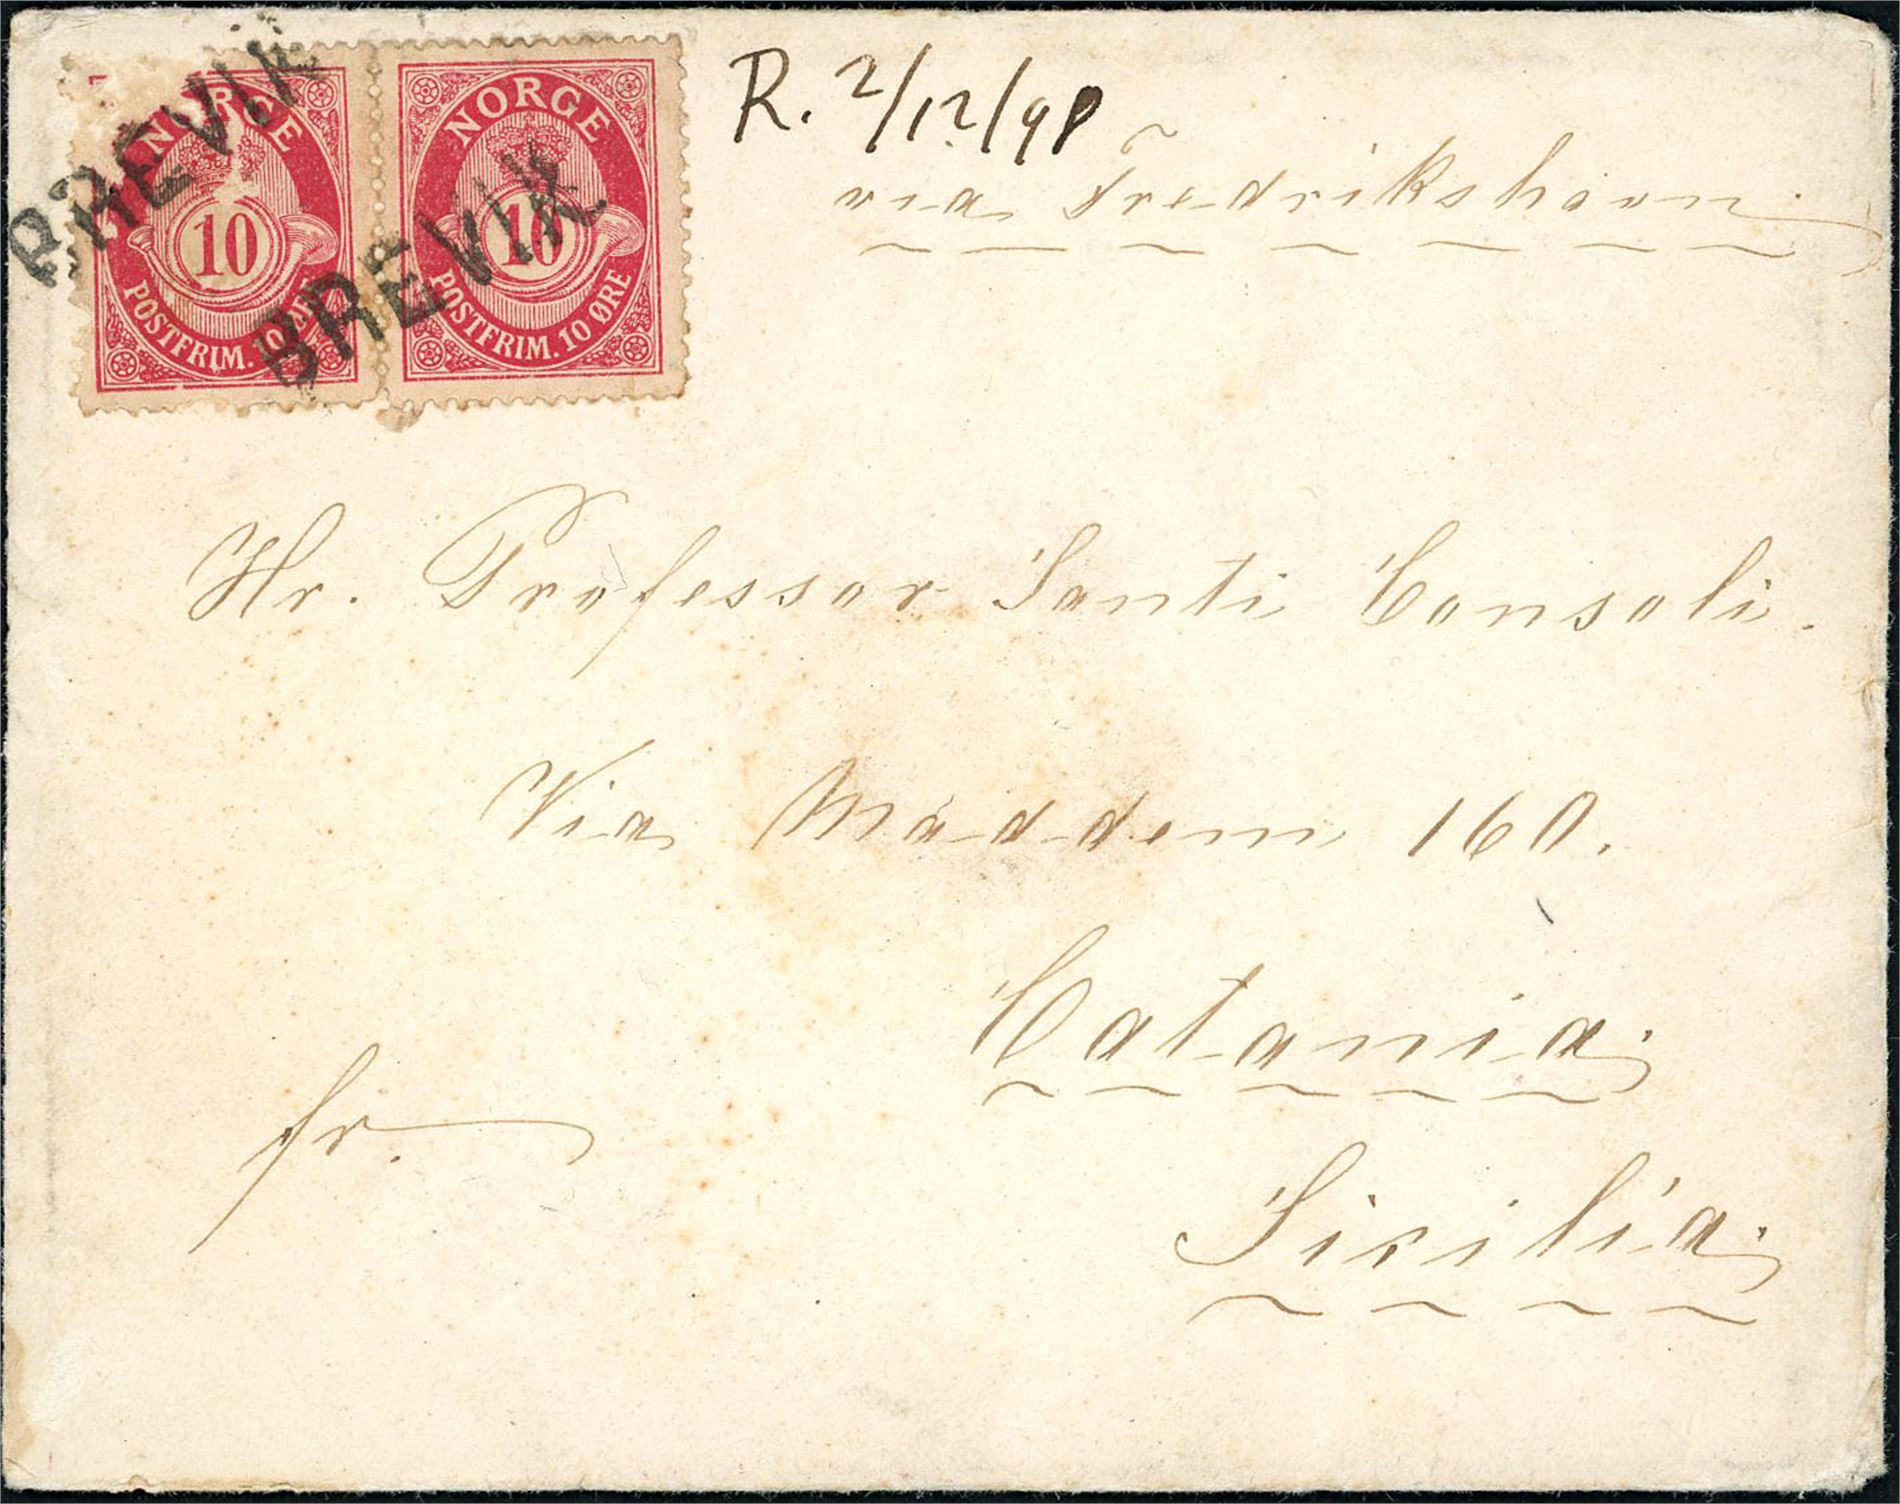 NORGE
10
POSTFRIM. 10 ØRE
NORGE
10
POSTFRIM. 10 ØRE
BREVIK
BREVIK
R. 2/12/98
via Fredrikshavn.
Hr. Professor Santi Consoli.
Via Maddem 160.
Catania.
fr.
Sicilia.